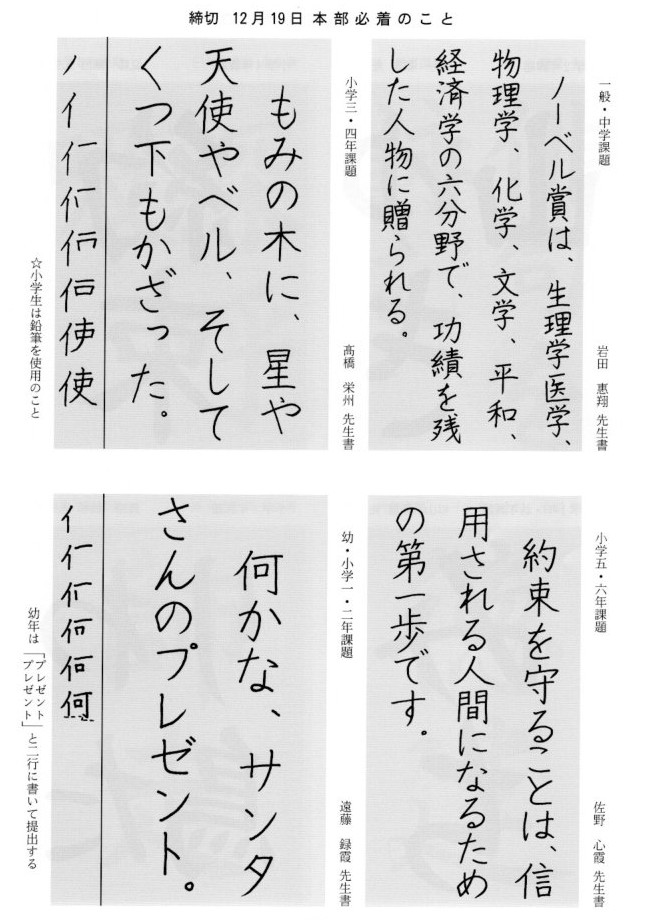 締切 12月19日 本部必着のこと
一般・中学課題
ノーベル賞は、生理学医学、
物理学、化学、文学、平和、
経済学の六分野で、功績を残
した人物に贈られる。
岩田 惠翔 先生書
小学三・四年課題
もみの木に、星や
天使やベル、そして
くつ下もかざった。
ノ亻仁仃佢佢使使
髙橋 栄州 先生書
☆小学生は鉛筆を使用のこと
小学五・六年課題
約束を守ることは、信
用される人間になるため
の第一歩です。
佐野 心霞 先生書
幼・小学一・二年課題
何かな、サンタ
さんのプレゼント。
何
遠藤 録霞 先生書
幼年は「プレゼント
プレゼント」と二行に書いて提出する